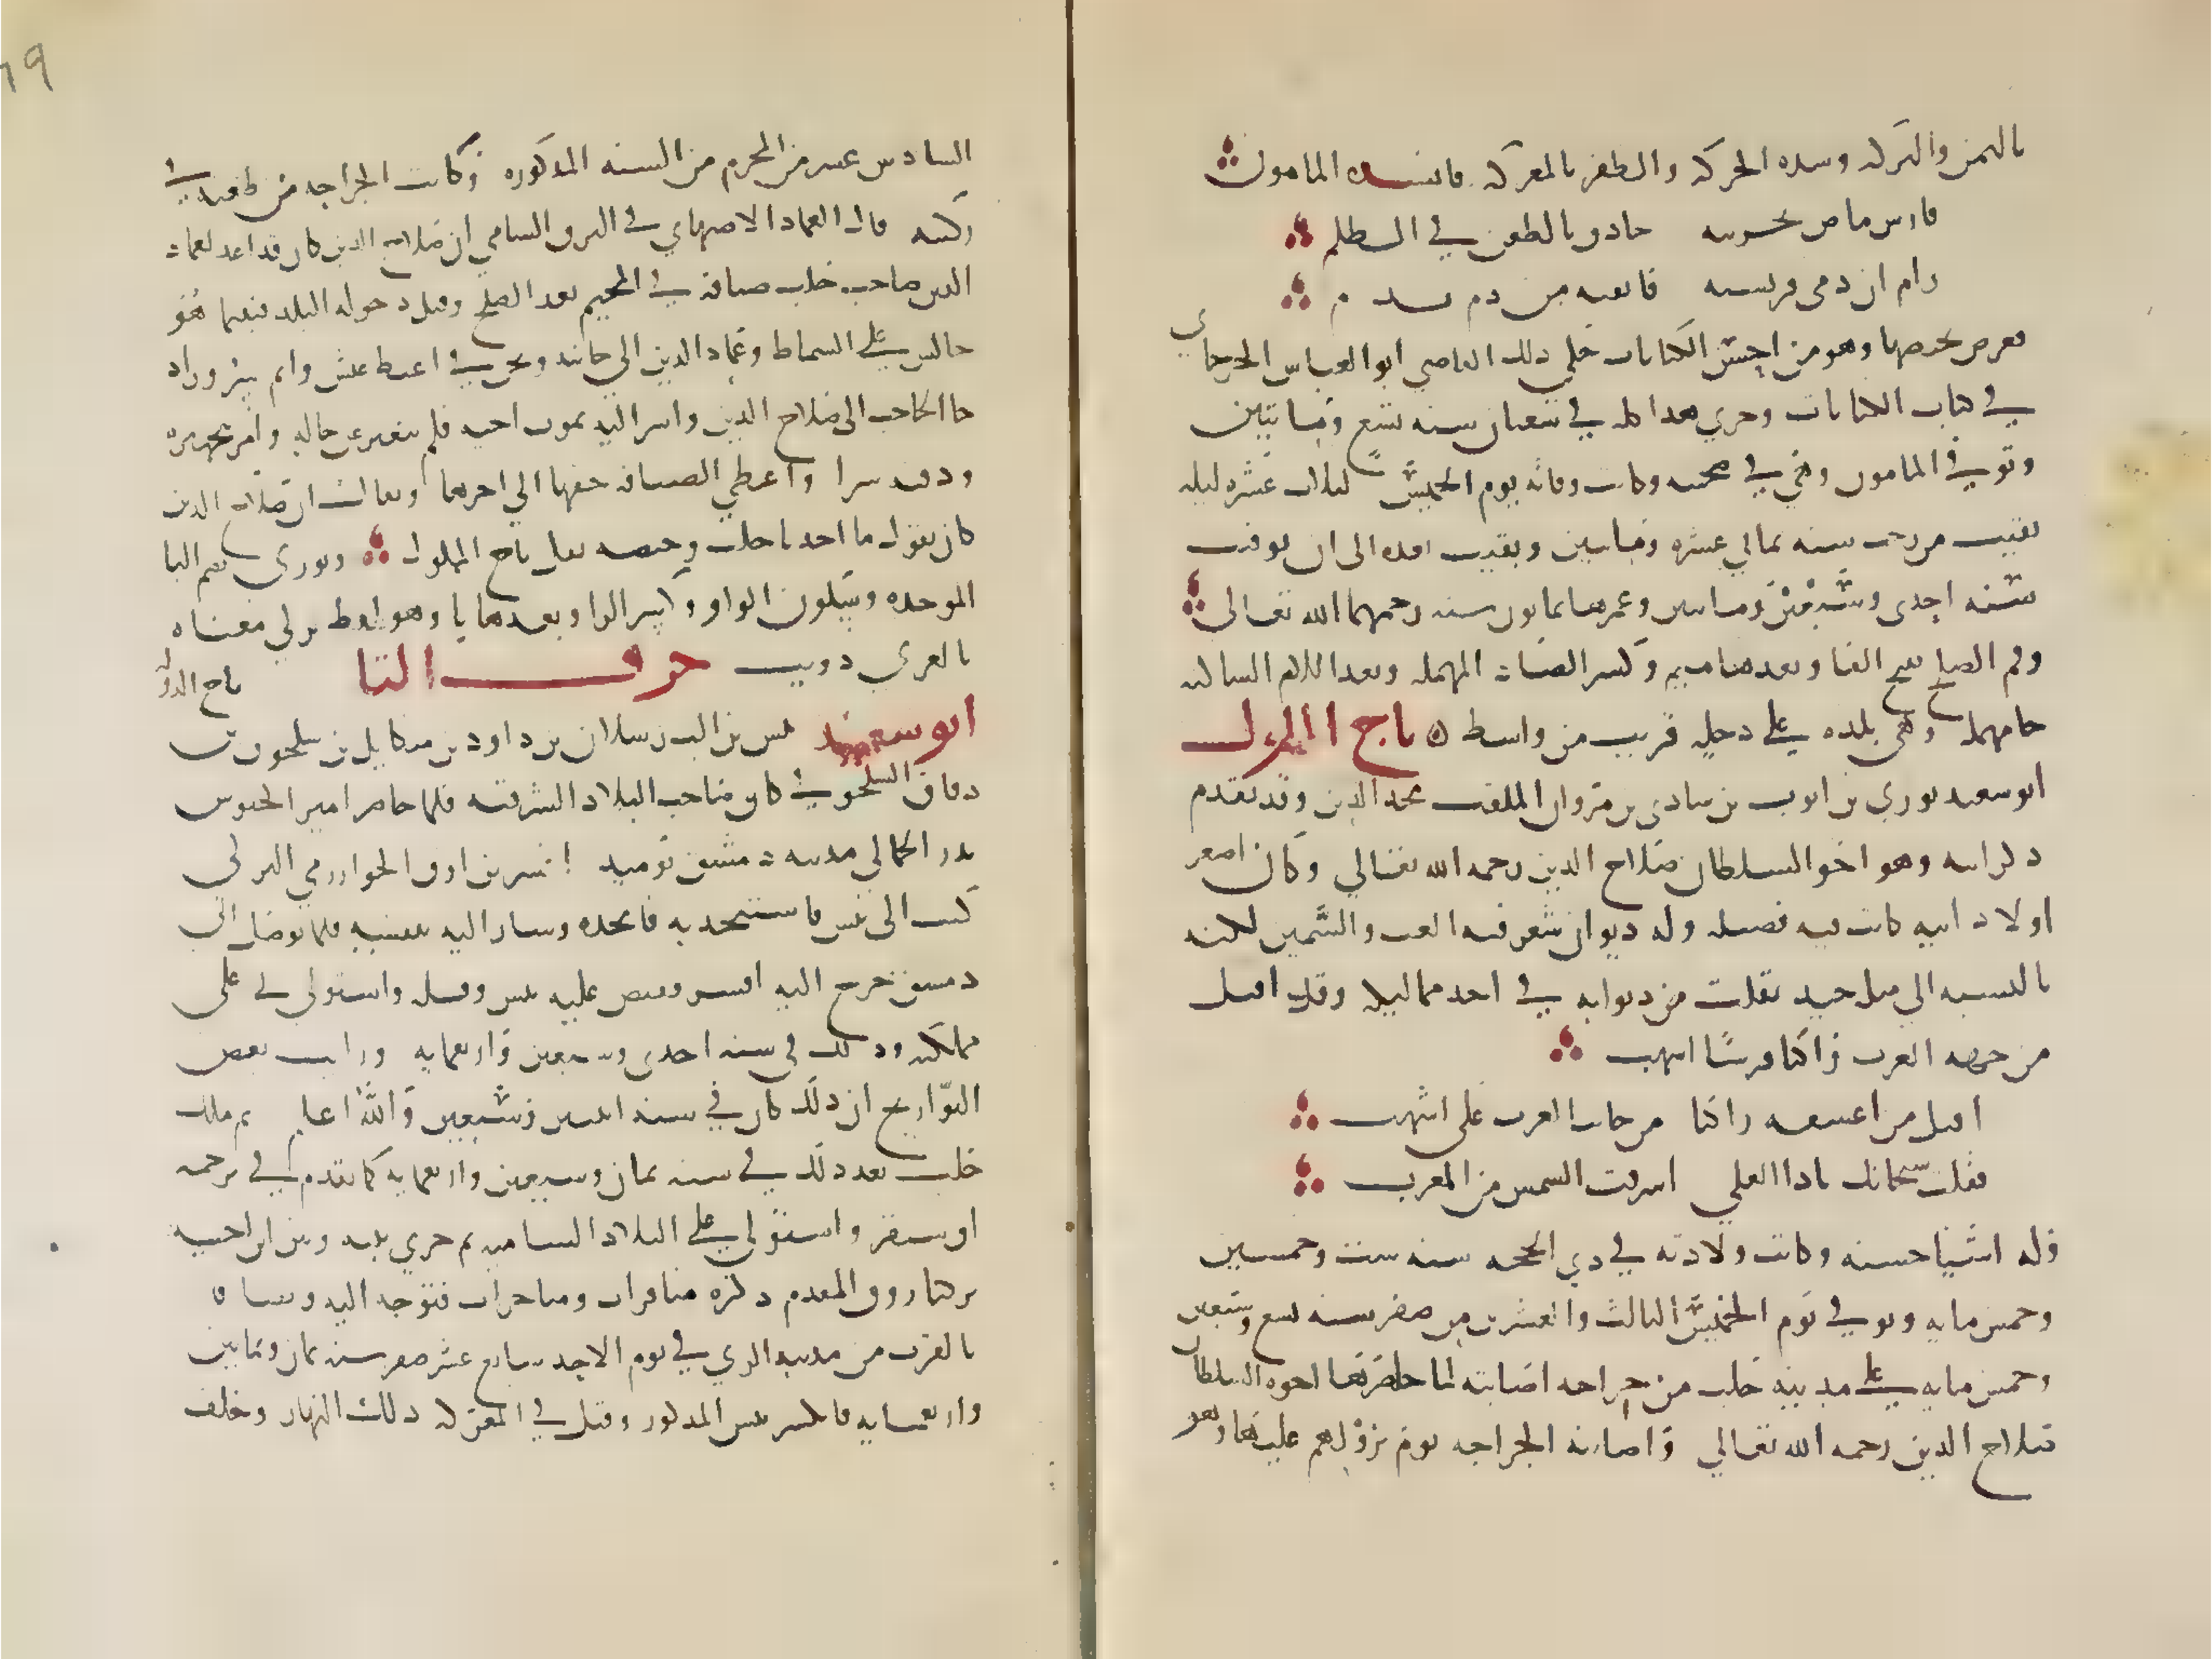 باليمن والبركه وشده الحركه والظفر بالمعركه فانشده المامون
فارس ماض بحربته حاذق بالطعن في الظلم
رام ان يدمي فريسته فاتقته من دم بدم
فعرض بحيضها وهو من احسن الكنايات حكي ذلك القاضي ابو العباس الجرجاني
في كتاب الكنايات وجري هذا كله في شعبان سنه تسع ومايتين
وتوفي المامون وهي في صحبته وكانت وفاته يوم الخميس لثلاث عشره ليله
بقيت من رجب سنه ثماني عشره ومايتين وبقيت بعده الى ان توفيت
سنه احدى وسبعين ومايتين وعمرها ثمانون سنه رحمهما الله تعالى
وفم الصلح بفتح الفا وبعدها ميم وكسر الصاد المهمله وبعد اللام الساكنه
حا مهمله وهي بلده على دجله قريب من واسط ه تاج الملوك
ابو سعيد بوري بن ايوب بن شادي بن مروان الملقب مجد الدين وقد تقدم
ذكر ابيه وهو اخو السلطان صلاح الدين رحمه الله تعالي وكان اصغر
اولاد ابيه كانت فيه فضيله وله ديوان شعر فيه الغث والسمين لكنه
بالنسبه الي مثله جيد نقلت من ديوانه في احد مماليكه وقد اقبل
من جهه الغرب راكبا فرسا اشهب
اقبل من اعشقه راكبا من جانب الغرب على اشهب
فقلت سبحانك ياذا العلي اشرقت الشمس من المغرب
وله اشيا حسنه وكانت ولادته في ذي الحجه سنه ست وخمسين
وخمس مايه وتوفي يوم الخميس الثالث والعشرين من صفر سنه تسع وسبعين
وخمس مايه على مدينه حلب من جراحه اصابته لما حاصرها اخوه السلطان
صلاح الدين رحمه الله تعالي واصابته الجراحه يوم نزولهم عليها وهو
السادس عشر من المحرم من السنه المذكوره وكانت الجراحه من طعنه في
ركبته قال العماد الاصبهاني في البرق الشامي ان صلاح الدين كان قد اعد لعماد
الدين صاحب حلب ضيافه في المخيم بعد الصلح وقبل دخوله البلد فبينما هو
جالس على السماط وعماد الدين الي جانبه ونحن في اغبط عيش واتم سرور اذ
جا الحاجب الى صلاح الدين واسر اليه بموت اخيه فلم يتغير عن حاله وامر بتجهيزه
ودفنه سرا واعطي الضيافه حقها الي اخرها ويقال ان صلاح الدين
كان يقول ما اخذنا حلب رخيصه بقتل تاج الملوك وبوري بضم البا
الموحده وسكون الواو وكسر الرا وبعدها يا وهو لفظ تركي معناه
بالعربي ذويب حرف التا تاج الدوله
ابو سعيد تتش بن الب رسلان بن داود بن ميكايل بن سلجوق بن
دقاق السلجوقي كان صاحب البلاد الشرقيه فلما حاصر امير الجيوش
بدر الجمالي مدينه دمشق توميد اتسز بن اوق الخوارزمي التركي
كتب الى تتش فاستنجد به فانجده وسار اليه بنفسه فلما توصل الى
دمشق خرج اليه اتسز فقبض عليه تتش وقتله واستولى على
مملكته وذلك في سنه احدى وسبعين واربعمايه ورايت بعض
التواريخ ان ذلك كان في سنه اثنين وسبعين والله اعلم ثم ملك
حلب بعد ذلك في سنه ثمان وسبعين واربعمايه كما تقدم في ترجمه
اق سنقر واستولى على البلاد الشاميه ثم جري بينه وبين ابن اخيه
بركياروق المقدم ذكره منافرات ومشاجرات فتوجه اليه وتصافا
بالقرب من مدينه الري في يوم الاحد سابع عشر صفر سنه ثمان وثمانين
واربعمايه فانكسر تتش المذكور وقتل في المعركه ذلك النهار وخلف